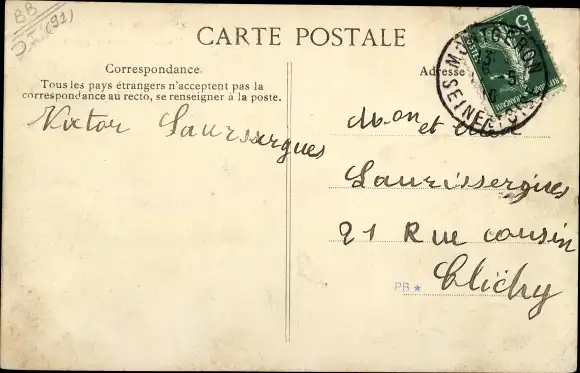 BB
(91)
CARTE POSTALE
Correspondance
Tous les pays étrangers n'acceptent pas la
correspondance au recto, se renseigner à la poste.
Victor Laurissergues
Adresse
5
MONTGERON
SEINE-ET-OISE
Mon et
Laurissergues
21 Rue cousin
Clichy
PB★